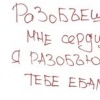 РАЗОБЪЕШЬ
МНЕ СЕРДЦЕ
Я РАЗОБЬЮ
ТЕБЕ ЕБАЛ